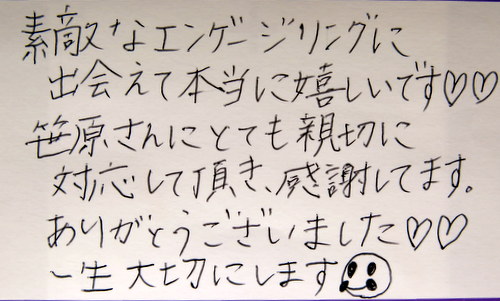 素敵なエンゲージリングに
出会えて本当に嬉しいです♡♡
笹原さんにとても親切に
対応して頂き、感謝してます。
ありがとうございました♡♡
一生大切にします